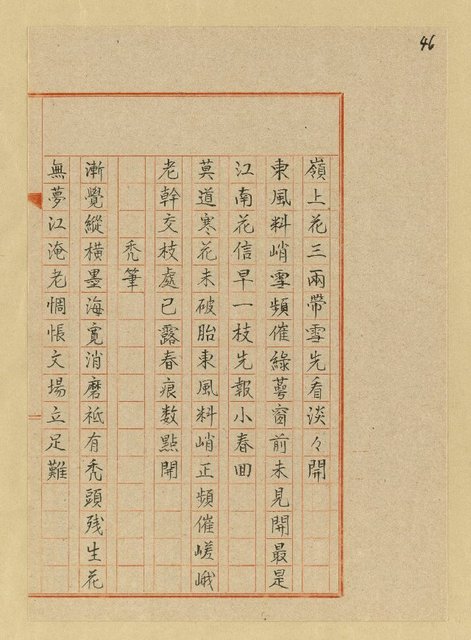 46
嶺上花三兩帶雪先看淡々開
東風料峭雪頻催綠萼窗前未見開最是
江南花信早一枝先報小春回
莫道寒花未破胎東風料峭正頻催嵯峨
老幹交枝處已露春痕数點開
禿筆
漸覺縱橫墨海寬消磨祗有禿頭殘生花
無夢江淹老惆悵文場立足難